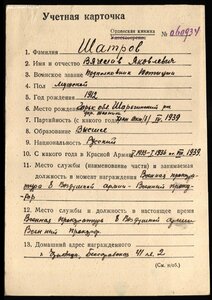 Учетная карточка
№
1. Фамилия Шатров
2. Имя и отчество Вячеслав Яковлевич
3. Воинское звание Подполковник Юстиции
4. Пол Мужской
5. Год рождения 1912
6. Место рождения
7. Партийность (с какого года) Член ВКП(б) 1939
8. Образование Высшее
9. Национальность Русский
10. С какого года в Красной Армии 1939
11. Место службы (наименование части) и занимаемая
должность в момент награждения Военная прокура-
тура 8 Воздушной армии - Военный проку-
рор
12. Место службы и должность в настоящее время
Военная Прокуратура 8 Воздушной армии
Военный прокурор
13. Домашний адрес награжденного
41 2
(См. н/об.)